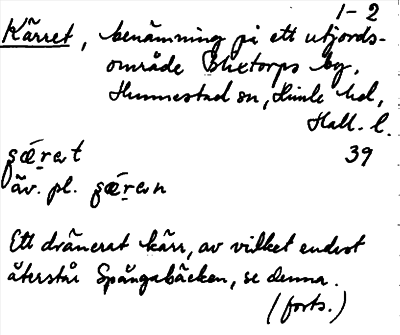 1-2
Kärret, benämning på ett utjords-
område Blixtorps by,
Hunnestad sn, Himle hd,
Hall. l.
39
ɕǽrat
äv. pl. ɕǽran
Ett dränerat kärr, av vilket endast
återstår Spångabäcken, se denna.
(forts.)